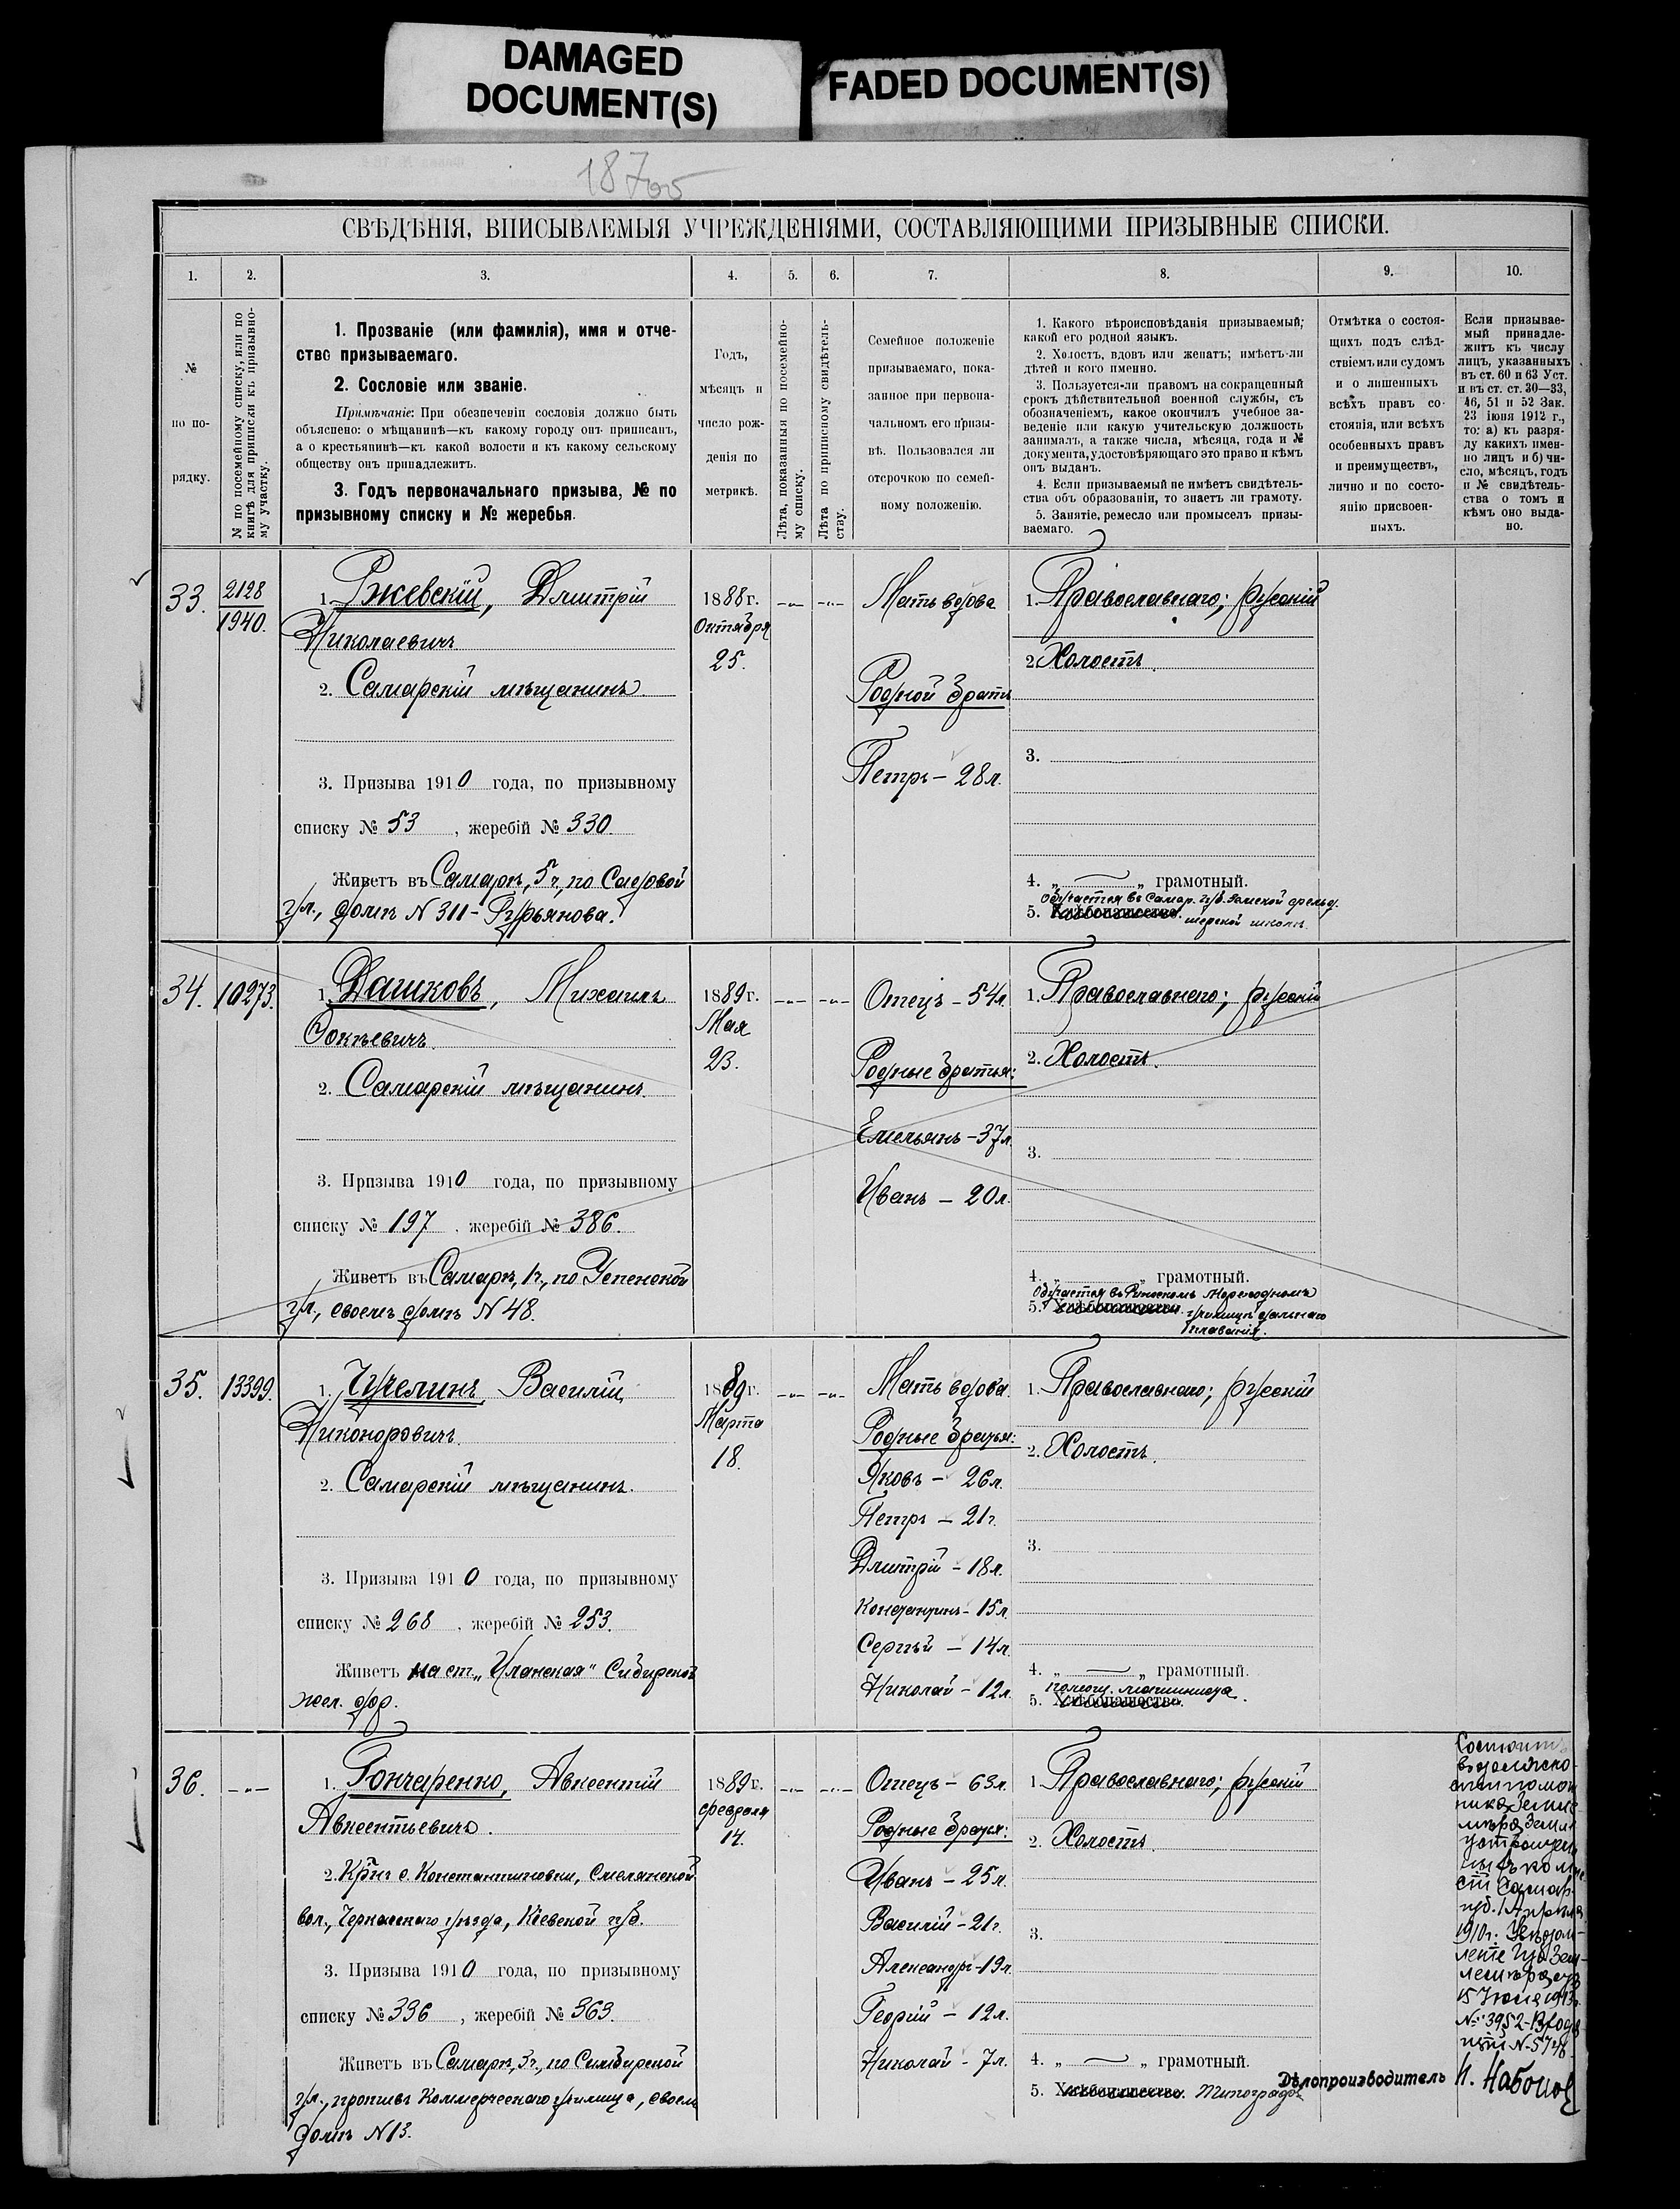 DAMAGED
DOCUMENT(S)
FADED DOCUMENT(S)
СВѢДѢНІЯ, ВПИСЫВАЕМЫЯ УЧРЕЖДЕНІЯМИ, СОСТАВЛЯЮЩИМИ ПРИЗЫВНЫЕ СПИСКИ.
1.
2.
3.
4.
5.
6.
7.
8.
9.
10.
№
по по-
рядку.
№ по посемейному списку, или по
книгѣ для приписки къ призывно-
му участку.
1. Прозваніе (или фамилія), имя и отче-
ство призываемаго.
2. Сословіе или званіе.
Примѣчаніе: При обезпеченіи сословія должно быть
объяснено: о мѣщанинѣ—къ какому городу онъ приписанъ,
а о крестьянинѣ—къ какой волости и къ какому сельскому
обществу онъ принадлежитъ.
3. Годъ первоначальнаго призыва, № по
призывному списку и № жеребья.
Годъ,
мѣсяцъ и
число рож-
денія по
метрикѣ.
Лѣта, показанныя по посемейно-
му списку.
Лѣта по приписному свидѣтель-
ству.
Семейное положеніе
призываемаго, пока-
занное при первона-
чальномъ его призы-
вѣ. Пользовался ли
отсрочкою по семей-
ному положенію.
1. Какого вѣроисповѣданія призываемый;
какой его родной языкъ.
2. Холостъ, вдовъ или женатъ; имѣетъ-ли
дѣтей и кого именно.
3. Пользуется-ли правомъ на сокращенный
срокъ дѣйствительной военной службы, съ
обозначеніемъ, какое окончилъ учебное за-
веденіе или какую учительскую должность
занималъ, а также числа, мѣсяца, года и №
документа, удостовѣряющаго это право и кѣмъ
онъ выданъ.
4. Если призываемый не имѣетъ свидѣтель-
ства объ образованіи, то знаетъ ли грамоту.
5. Занятіе, ремесло или промыселъ призы-
ваемаго.
Отмѣтка о состоя-
щихъ подъ слѣд-
ствіемъ или судомъ
и о лишенныхъ
всѣхъ правъ со-
стоянія, или всѣхъ
особенныхъ правъ
и преимуществъ,
лично и по состо-
янію присвоен-
ныхъ.
Если призывае-
мый принадле-
житъ къ числу
лицъ, указанныхъ
въ ст. 60 и 63 Уст.
и въ ст. ст. 30—33,
46, 51 и 52 Зак.
23 іюня 1912 г.,
то: а) къ разря-
ду какихъ имен-
но лицъ и б) чи-
сло, мѣсяцъ, годъ
и № свидѣтель-
ства о томъ и
кѣмъ оно выда-
но.
33.
2128
1940.
1. Ржевскій, Дмитрій
Николаевичъ
2. Самарскій мѣщанинъ
3. Призыва 1910 года, по призывному
списку № 53, жеребій № 330.
Живетъ въ Самарѣ, 5ч, по Садовой
ул., домъ N 311 - Гурьянова.
1888 г.
Октября
25.
Мать вдова
Родной братъ
Петръ - 28 л.
1. Православнаго; русскій
2. Холостъ.
3.
4. „ — „ грамотный.
Обучается въ Самар. губ. Земской фельд.
5. Хлѣбопашество. шерской школѣ.
34.
10273.
1. Дашковъ, Михаилъ
Фокѣевичъ.
2. Самарскій мѣщанинъ.
3. Призыва 1910 года, по призывному
списку № 197, жеребій № 386.
Живетъ въ Самарѣ, 1ч., по Успенской
ул., своемъ домѣ N 48.
1889 г.
Мая
23.
Отецъ - 54 л.
Родные братья:
Емельянъ - 37 л.
Иванъ - 20 л.
1. Православнаго; русскій
2. Холостъ.
3.
4. „ — „ грамотный.
Обучается въ Рижскомъ Мореходномъ
5. Хлѣбопашество. училищѣ дальнаго
плаванія.
35.
13399.
1. Чучелинъ, Василій
Никоноровичъ.
2. Самарскій мѣщанинъ.
3. Призыва 1910 года, по призывному
списку № 268, жеребій № 253.
Живетъ на ст. „Иланская" Сибирской
жел. дор.
1889 г.
Марта
18.
Мать вдова.
Родные братья:
Яковъ - 26 л.
Петръ - 21 г.
Дмитрій - 18 л.
Константинъ - 15 л.
Сергѣй - 14 л.
Николай - 12 л.
1. Православнаго; русскій
2. Холостъ.
3.
4. „ — „ грамотный.
помощ. машиниста.
5. Хлѣбопашество.
36.
1. Гончаренко, Авксентій
Авксентьевичъ.
2. Кр-нъ с. Константиновки, Смелянской
вол., Черкасскаго уѣзда, Кіевской губ.
3. Призыва 1910 года, по призывному
списку № 336, жеребій № 363.
Живетъ въ Самарѣ, 3ч., по Симбирской
ул., противъ Коммерческаго училища, своемъ
домѣ N 13.
1889 г.
февраля
14.
Отецъ - 63 л.
Родные братья:
Иванъ - 25 л.
Василій - 21 г.
Александръ - 19 л.
Георгій - 12 л.
Николай - 7 л.
1. Православнаго; русскій
2. Холостъ.
3.
4. „ — „ грамотный.
5. Хлѣбопашество. Типографъ
Состоитъ
15 Іюня 1913г.
№ 3952
Дѣлопроизводитель